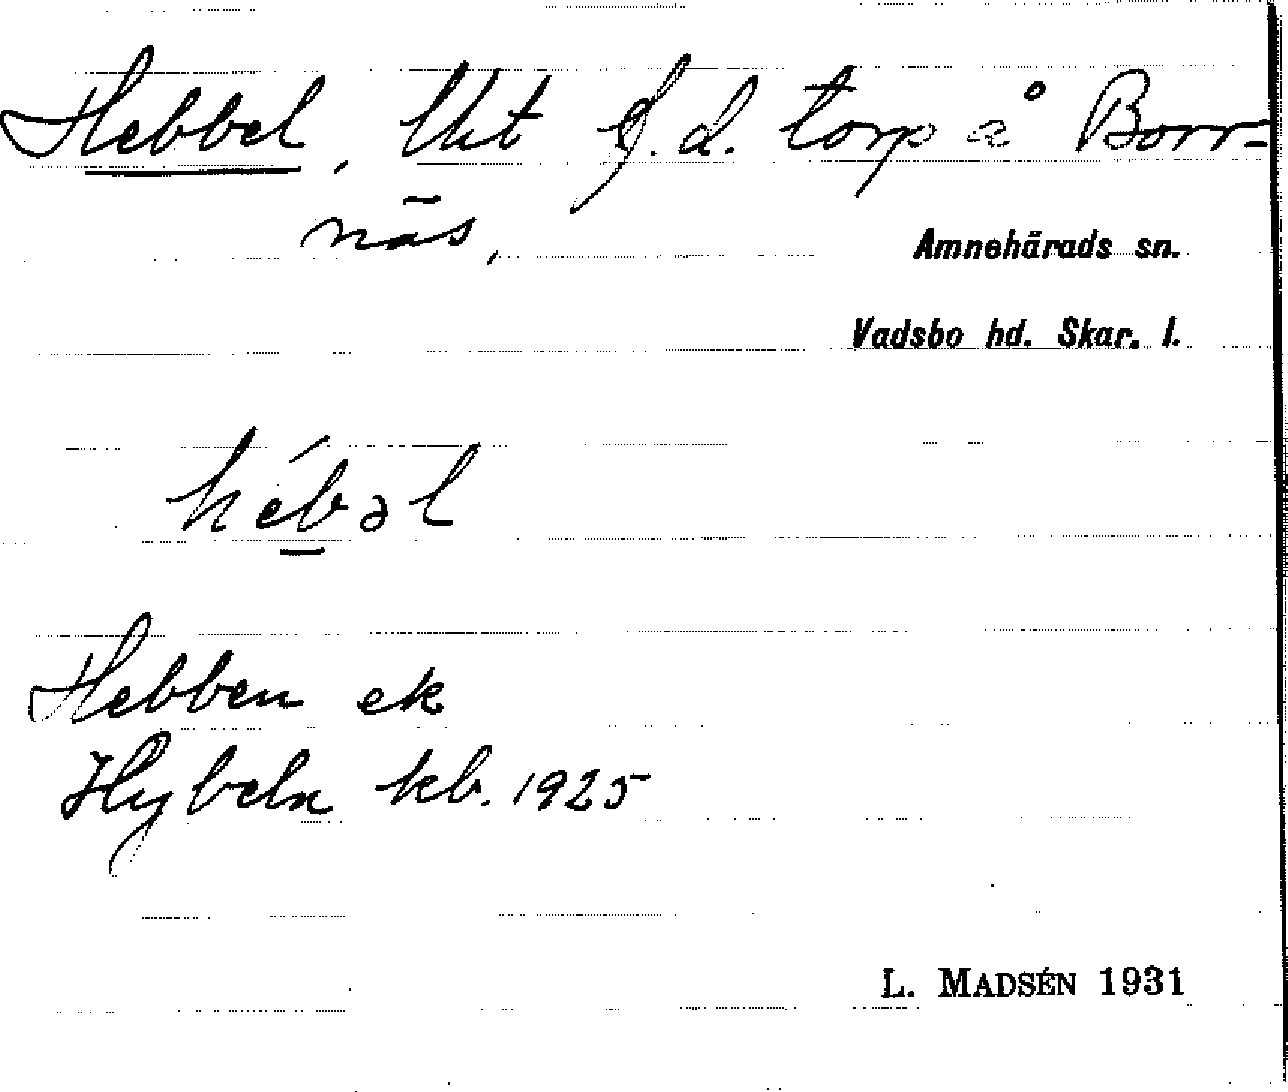 Hebbel, lht f.d. torp å Borr-
näs,
Amnehärads sn.
Vadsbo hd. Skar. l.
hébəl
Hebben ek
Hybeln kb. 1925
L. MADSÉN 1931